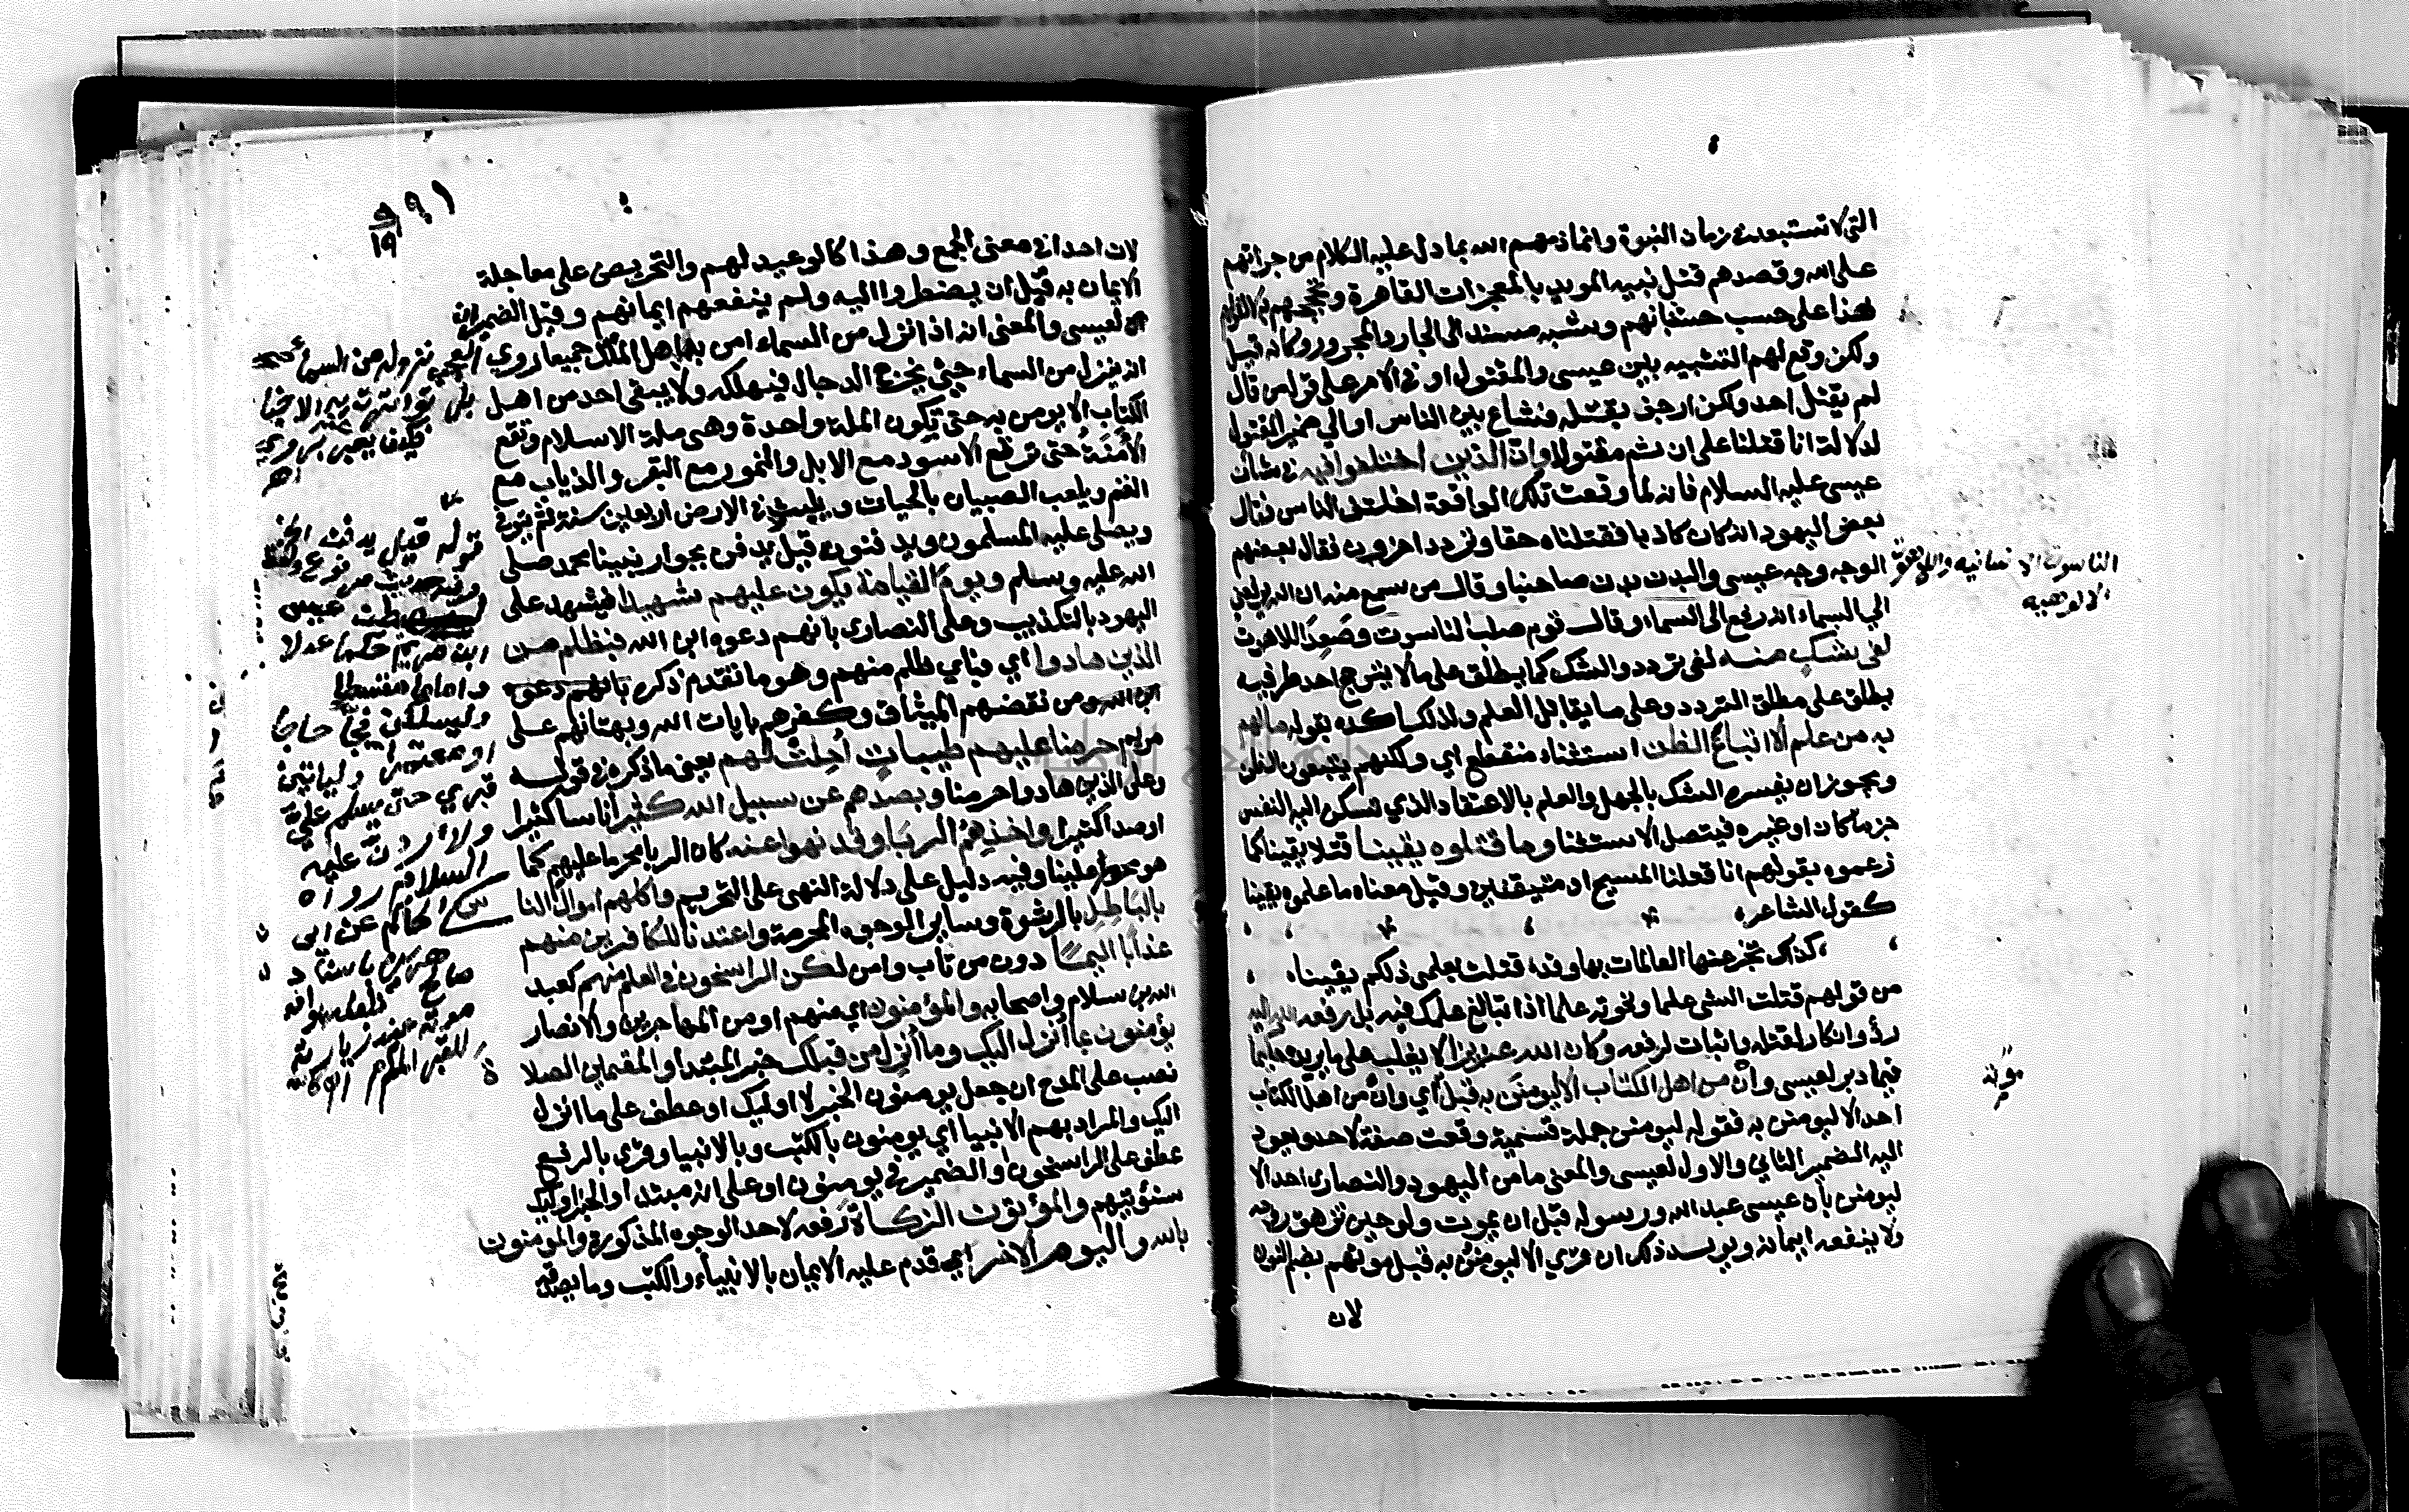 التي لا تستبعد في زمان النبوة وانما ذمهم الله بما دل عليه الكلام من جرأتهم
على الله وقصدهم قتل نبيه المويد بالمعجزات القاهرة وتبجحهم به لا لقولهم
هذا على حسب حسبانهم وشبه مسند الى الجار والمجرور وكانه قيل
ولكن وقع لهم التشبيه بين عيسى والمقتول او في الامر على قول من قال
لم يقتل احد ولكن ارجف بقتله فشاع بين الناس او الي ضمير المقتول
لدلالة انا قتلنا على ان ثم مقتولا وان الذين اختلفوا فيه في شان
عيسى عليه السلام فانه لما وقعت تلك الواقعة اختلف الناس فقال
بعض اليهود انه كان كاذبا فقتلناه حقا وتردد اخرون فقال بعضهم
الوجه وجه عيسى والبدن بدن صاحبنا وقال من سمع منه ان الله يرفعني
الي السماء انه رفع الى السماء وقال قوم صلب الناسوت وصعد اللاهوت
لفي شك منه لفي تردد والشك كما يطلق على ما لا يترجح احد طرفيه
يطلق على مطلق التردد وعلى ما يقابل العلم ولذلك اكده بقوله ما لهم
به من علم الا اتباع الظن استثناء منقطع اي ولكنهم يتبعون الظن
ويجوز ان يفسر الشك بالجهل والعلم بالاعتقاد الذي تسكن اليه النفس
جزما كان او غيره فيتصل الاستثنا وما قتلوه يقينا قتلا يقينا كما
زعموه بقولهم انا قتلنا المسيح او متيقنين وقيل معناه ما علموه يقينا
كقول الشاعر
كذاك تخبر عنها العالمات بها وقد قتلت بعلمي ذلكم يقينا
من قولهم قتلت الشي علما ونحوته علما اذا تبالغ علمك فيه بل رفعه الله اليه
رد وانكار لقتله واثبات لرفعه وكان الله عزيزا لا يغلب على ما يريده حكيما
فيما دبر لعيسى وان من اهل الكتاب الا ليومنن به قبل اي وان من اهل الكتاب
احد الا ليومنن به فقوله ليومنن جملة قسمية وقعت صفة لاحد ويعود
اليه الضمير الثاني والاول لعيسى والمعنى ما من اليهود والنصارى احد الا
ليومنن بان عيسى عبد الله ورسوله قبل ان يموت ولو حين تزهق روحه
ولا ينفعه ايمانه ويويد ذلك ان قري الا ليومنن به قبل موتهم بضم النون
لان
الناسوت الانسانيه واللاهوت
الالوهيه
موته
١٩٩
١٩
لان احدا في معنى الجمع وهذا كالوعيد لهم والتحريص على معاجلة
الايمان به قبل ان يضطروا اليه ولم ينفعهم ايمانهم وقيل الضميران
لعيسى والمعنى انه اذا نزل من السماء امن به اهل الملل جميعا روي
انه ينزل من السماء حين يخرج الدجال فيهلكه ولا يبقى احد من اهل
الكتاب الا يومن به حتى تكون الملة واحدة وهي ملة الاسلام وتقع
الامنة حتى ترتع الاسود مع الابل والنمور مع البقر والذياب مع
الغنم ويلعب الصبيان بالحيات ويلبث في الارض اربعين سنة ثم يتوفى
ويصلى عليه المسلمون ويدفنون قيل يدفن بجوار نبينا محمد صلى
الله عليه وسلم ويوم القيامة يكون عليهم شهيدا فيشهد على
اليهود بالتكذيب وعلى النصارى بانهم دعوه ابن الله فبظلم من
الذين هادوا اي فباي ظلم منهم وهو ما تقدم ذكره بانهم دعوه
ابن الله ومن نقضهم الميثاق وكفرهم بايات الله وبهتانهم على
مريم حرمنا عليهم طيبات احلت لهم يعني ما ذكره في قوله
وعلى الذين هادوا حرمنا وبصدهم عن سبيل الله كثيرا ناسا كثيرا
او صدا كثيرا واخذهم الربا وقد نهوا عنه كان الربا محرما عليهم كما
هو محرم علينا وفيه دليل على دلالة النهي على التحريم واكلهم اموال النا
بالباطل بالرشوة وساير الوجوه المحرمة واعتدنا للكافرين منهم
عذابا اليما دون من تاب وامن لكن الراسخون في العلم منهم كعبد
الله بن سلام واصحابه والمؤمنون اي منهم او من المهاجرين والانصار
يؤمنون بما انزل اليك وما انزل من قبلك خبر المبتدا والمقيمين الصلا
نصب على المدح ان جعل يومنون الخبر لا اوليك او عطف على ما انزل
اليك والمراد بهم الانبيا اي يومنون بالكتب وبالانبيا وقرى بالرفع
عطف على الراسخون او الضمير في يومنون او على انه مبتدا والخبر اوليك
سنؤتيهم والمؤتون الزكاة رفعه لاحد الوجوه المذكورة والمومنون
بالله واليوم الاخر قدم عليه الايمان بالانبياء والكتب وما يصدقه
نزوله من السماء
بل تواترت به الاخبا
فكيف يعبر بروي
اهـ
قوله قيل يدفن الخ
ابن مريم حكما عدلا
واماما مقسطا
وليسلكن فجا حاجا
او معتمرا وليأتين
قبري حتى يسلم علي
ولأردن عليه
السلام رواه
الحاكم عن ابي